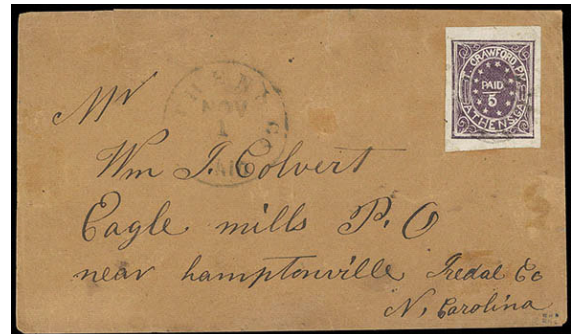 T. CRAWFORD, P.M.
PAID
5
ATHENS GA
ATHENS
NOV
1
PAID
Mr
Wm T. Colvert
Eagle mills P. O
near hamptonville Iredal Co
N. Carolina